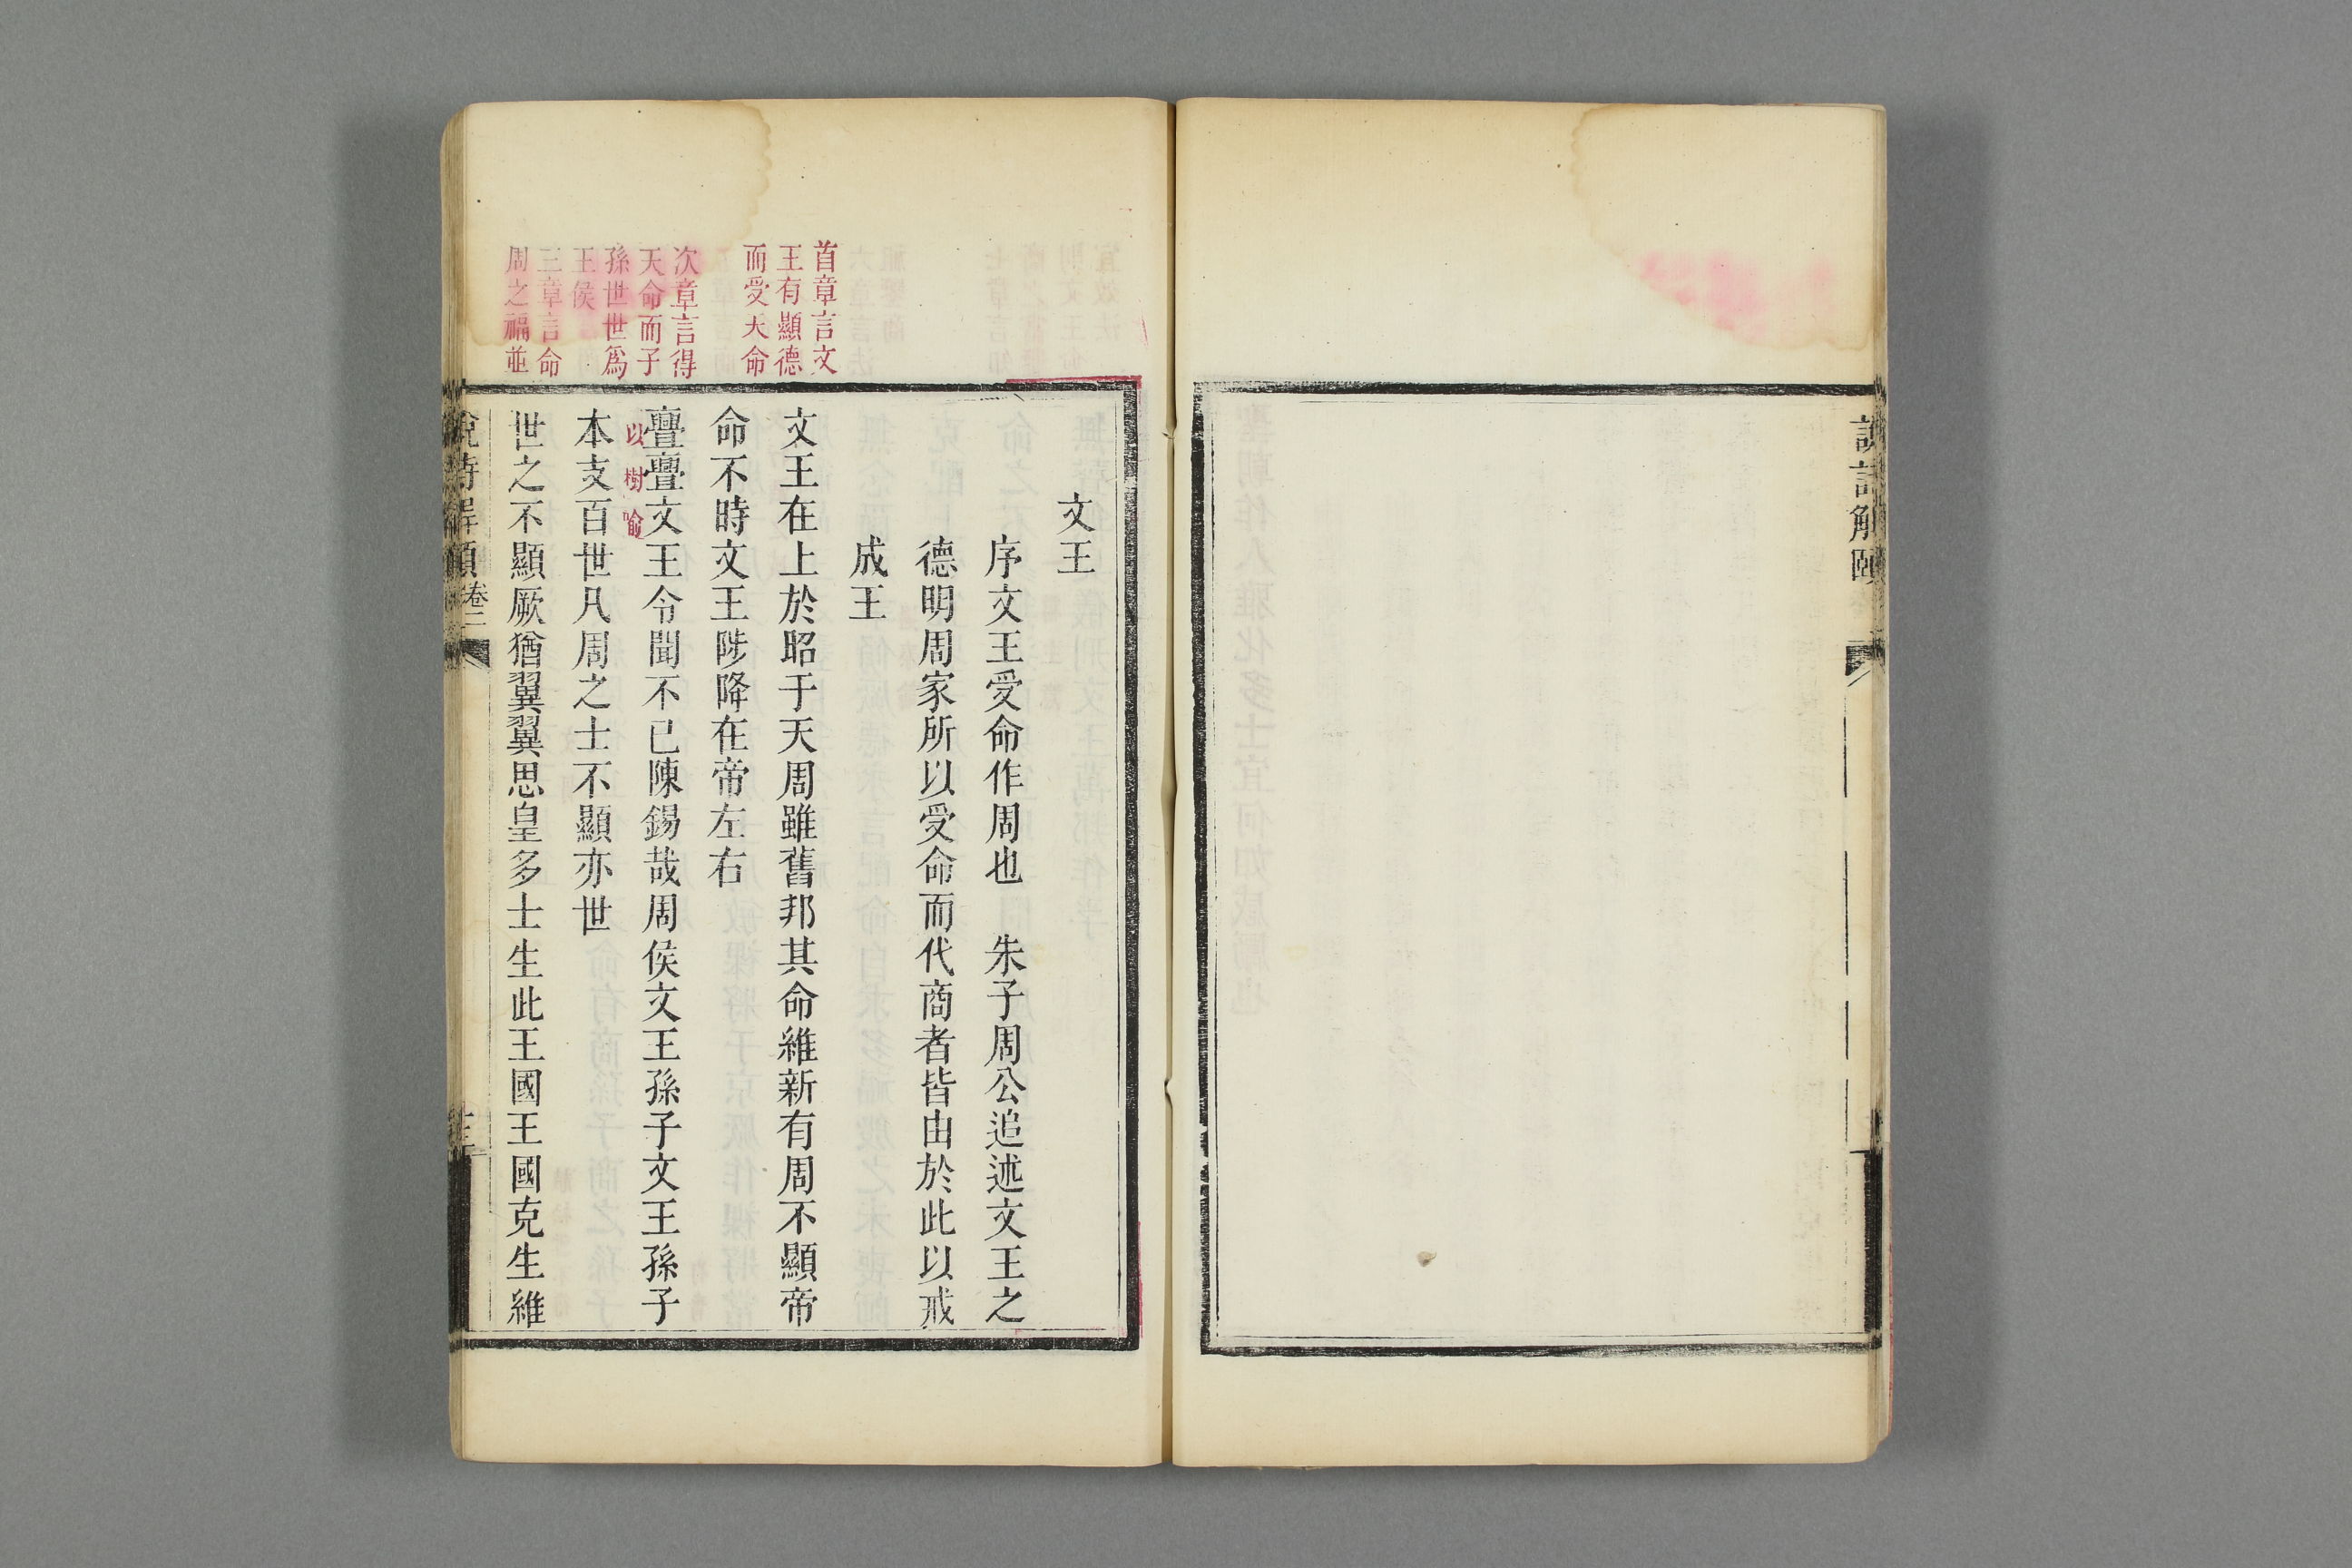 說詩解頤
首章言文
王有顯德
而受天命
次章言得
天命而子
孫世世爲
王侯
三章言命
周之福並
文王
序文王受命作周也　朱子周公追述文王之
德明周家所以受命而代商者皆由於此以戒
成王
文王在上於昭于天周雖舊邦其命維新有周不顯帝
命不時文王陟降在帝左右
亹亹文王令聞不已陳錫哉周侯文王孫子文王孫子
以樹喻
本支百世凡周之士不顯亦世
世之不顯厥猶翼翼思皇多士生此王國王國克生維
說詩解頤 卷三